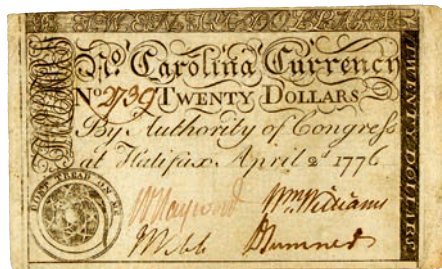 TWENTY DOLLARS
No. Carolina Currency
No 2739 TWENTY DOLLARS
By Authority of Congress
at Halifax April 2d 1776
DONT TREAD ON ME
W Haywood Wm. Williams
J Webb J Sumner
TWENTY DOLLARS